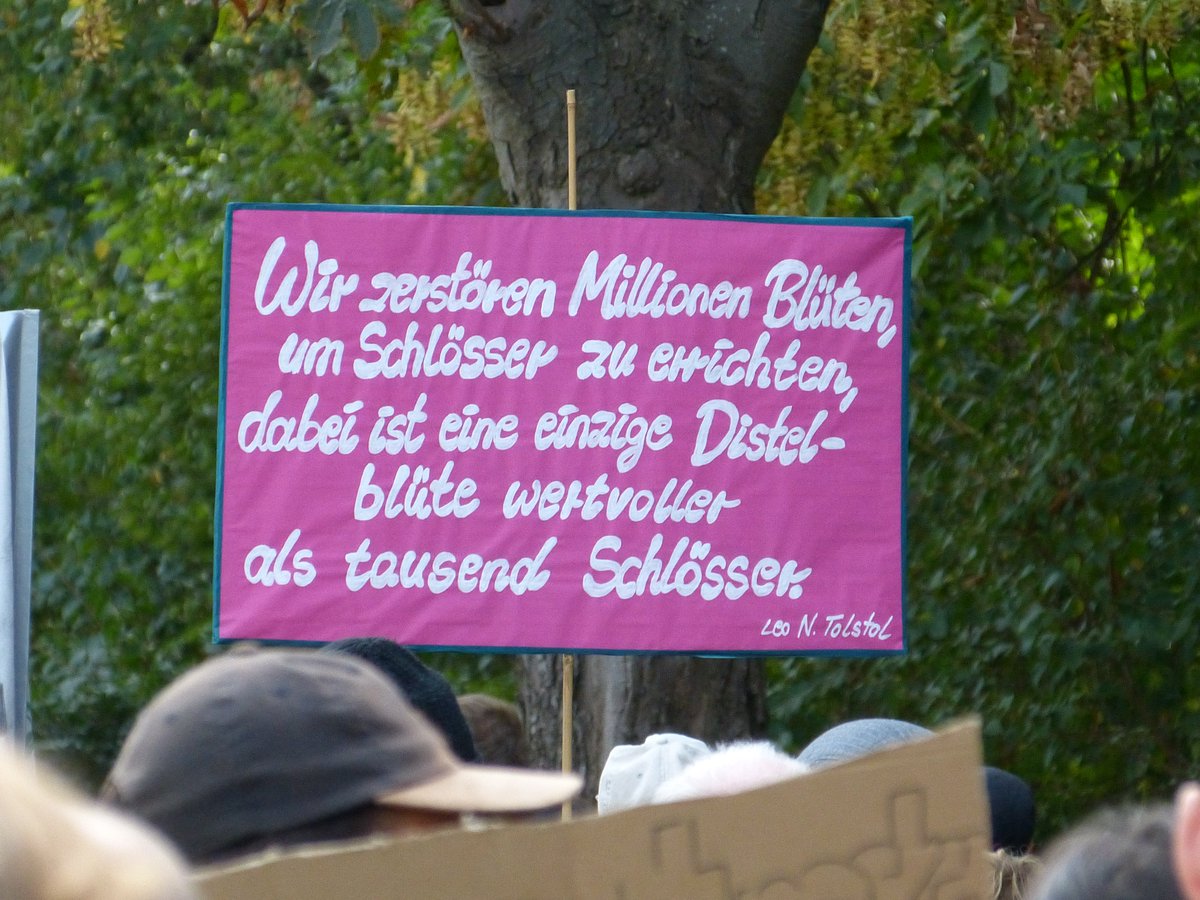 Wir zerstören Millionen Blüten,
um Schlösser zu errichten,
dabei ist eine einzige Distel-
blüte wertvoller
als tausend Schlösser.
Leo N. Tolstol